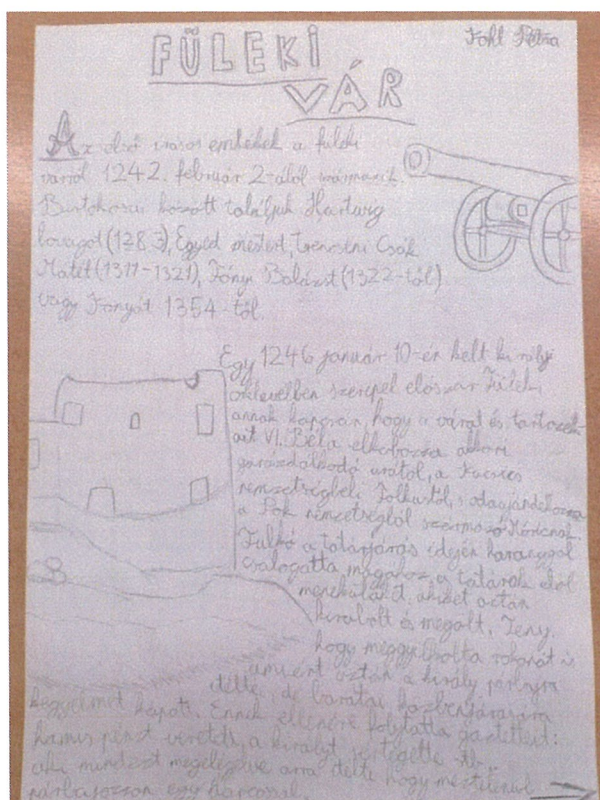 FÜLEKI
VÁR
Pohl Petra
Az első írásos emlékek a füleki
várról 1242. február 2-ából származik.
Birtokosai között találjuk Hartwig
lovagot (1283), Egyed mestert, Trencséni Csák
Mátét (1311-1321), Balázst (1322-től)
vagy 1354-től.
Egy 1246 január 10-én kelt királyi
oklevélben szerepel először Fülek,
annak kapcsán, hogy a várat és tartozék-
ait VI. Béla elkobozza akkori
garázdálkodó urától, a Kacsics
nemzetségbeli Folkustól, s odaajándékozza
a Pok nemzetségből származó Móricnak.
Fulkó a tatárjárás idején haranggal
csalogatta magához a tatárok elől
menekülőket, akiket aztán
kirabolt és megölt. Tény,
hogy meggyilkolta rokonát is
amiért aztán a király
de barátai közbenjárására
kegyelmet kapott. Ennek ellenére folytatta gaztetteit:
hamis pénzt veretett, a királyt stb.
mindezt arra hogy meztelenül
párbajozzon egy harcossal.